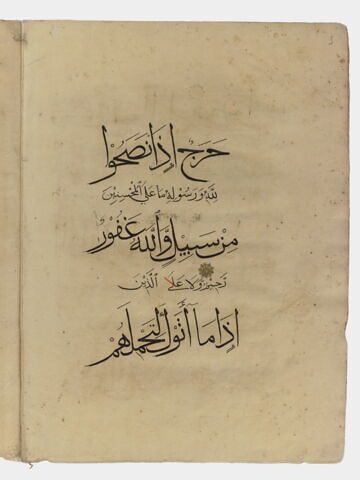 حَرَجٌ إِذَا نَصَحُوا
لِلَّهِ وَرَسُولِهِ مَا عَلَى الْمُحْسِنِينَ
مِنْ سَبِيلٍ وَاللَّهُ غَفُورٌ
رَحِيمٌ وَلَا عَلَى الَّذِينَ
إِذَا مَا أَتَوْكَ لِتَحْمِلَهُمْ